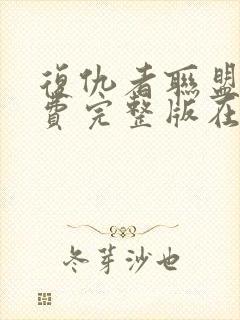 復仇者聯盟
費完整版在
冬芽沙也